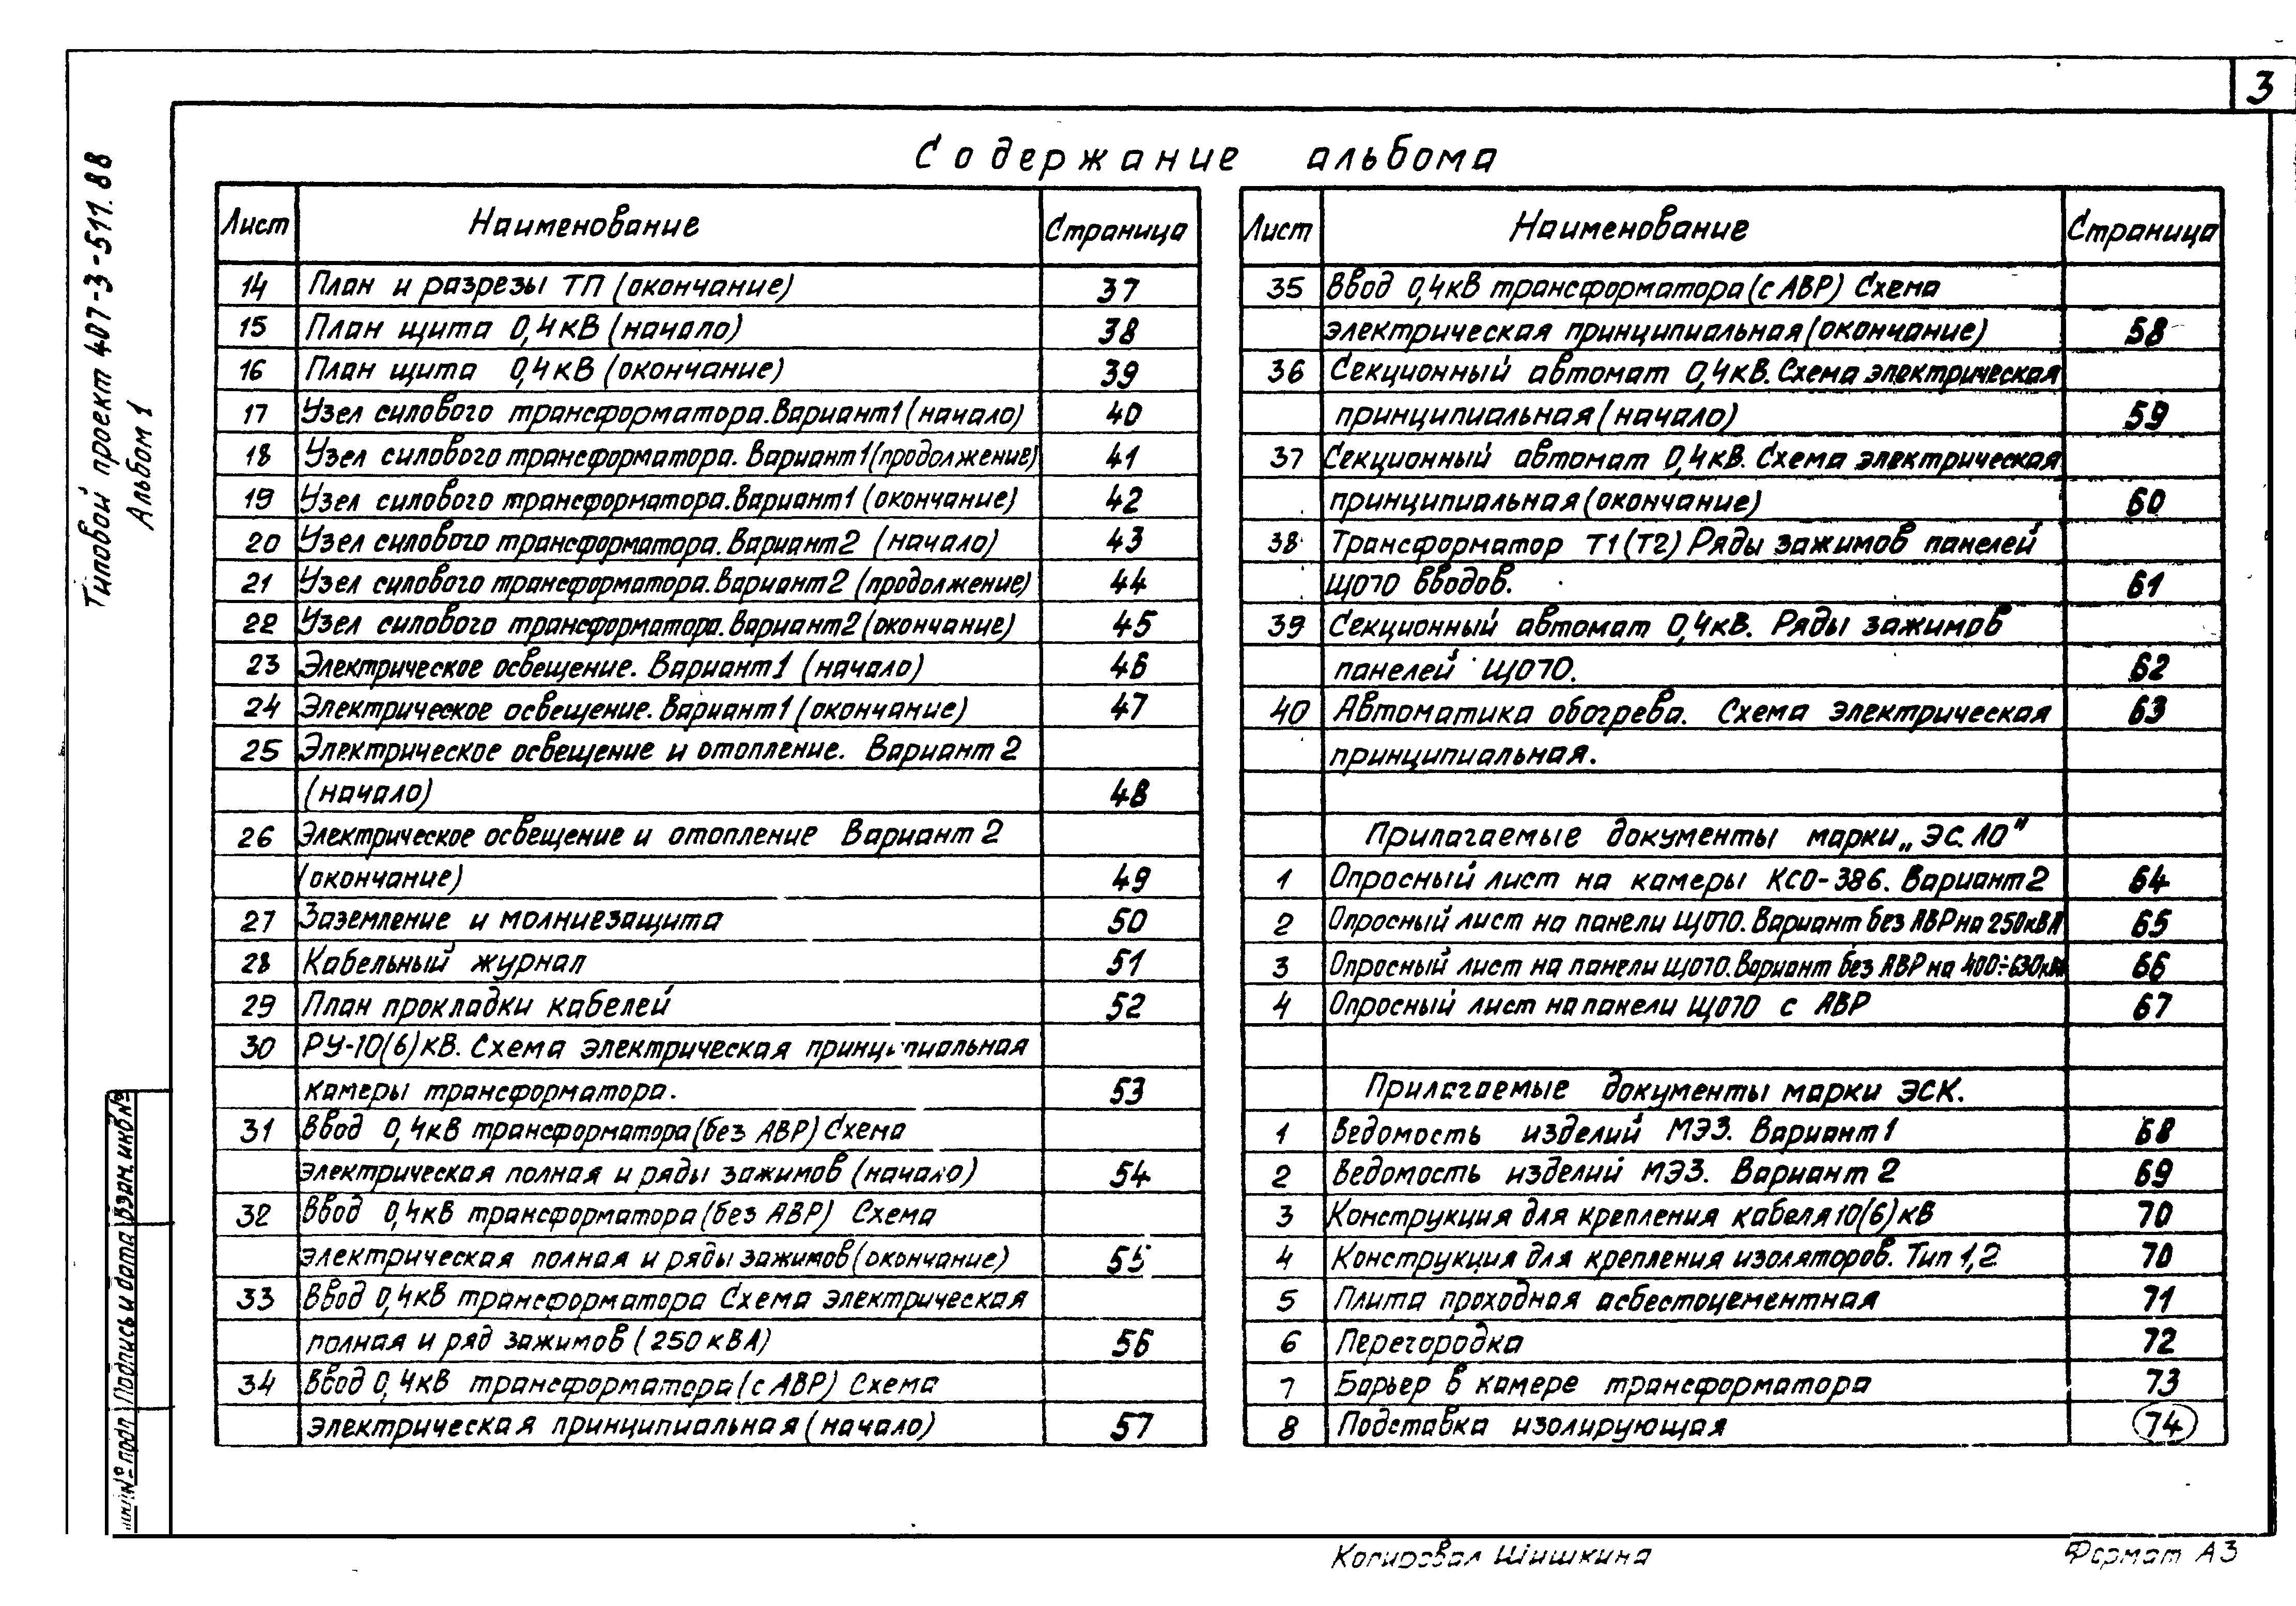 3
Типовой проект 407-3-511.88
Альбом 1
Содержание альбома
Лист Наименование Страница
14 План и разрезы ТП (окончание) 37
15 План щита 0,4кВ (начало) 38
16 План щита 0,4кВ (окончание) 39
17 Узел силового трансформатора. Вариант 1 (начало) 40
18 Узел силового трансформатора. Вариант 1 (продолжение) 41
19 Узел силового трансформатора. Вариант 1 (окончание) 42
20 Узел силового трансформатора. Вариант 2 (начало) 43
21 Узел силового трансформатора. Вариант 2 (продолжение) 44
22 Узел силового трансформатора. Вариант 2 (окончание) 45
23 Электрическое освещение. Вариант 1 (начало) 46
24 Электрическое освещение. Вариант 1 (окончание) 47
25 Электрическое освещение и отопление. Вариант 2
(начало) 48
26 Электрическое освещение и отопление Вариант 2
(окончание) 49
27 Заземление и молниезащита 50
28 Кабельный журнал 51
29 План прокладки кабелей 52
30 РУ-10(6)кВ. Схема электрическая принципиальная
камеры трансформатора. 53
31 Ввод 0,4кВ трансформатора (без АВР) Схема
электрическая полная и ряды зажимов (начало) 54
32 Ввод 0,4кВ трансформатора (без АВР) Схема
электрическая полная и ряды зажимов (окончание) 55
33 Ввод 0,4кВ трансформатора Схема электрическая
полная и ряд зажимов (250 кВА) 56
34 Ввод 0,4кВ трансформатора (с АВР) Схема
электрическая принципиальная (начало) 57
Лист Наименование Страница
35 Ввод 0,4кВ трансформатора (с АВР) Схема
электрическая принципиальная (окончание) 58
36 Секционный автомат 0,4кВ. Схема электрическая
принципиальная (начало) 59
37 Секционный автомат 0,4кВ. Схема электрическая
принципиальная (окончание) 60
38 Трансформатор Т1(Т2) Ряды зажимов панелей
ЩО70 вводов. 61
39 Секционный автомат 0,4кВ. Ряды зажимов
панелей ЩО70. 62
40 Автоматика обогрева. Схема электрическая 63
принципиальная.
Прилагаемые документы марки „ЭС.ЛО"
1 Опросный лист на камеры КСО-386. Вариант 2 64
2 Опросный лист на панели ЩО70. Вариант без АВР на 250кВА 65
3 Опросный лист на панели ЩО70. Вариант без АВР на 400÷630кВА 66
4 Опросный лист на панели ЩО70 с АВР 67
Прилагаемые документы марки ЭСК.
1 Ведомость изделий МЭЗ. Вариант 1 68
2 Ведомость изделий МЭЗ. Вариант 2 69
3 Конструкция для крепления кабеля 10(6)кВ 70
4 Конструкция для крепления изоляторов. Тип 1,2 70
5 Плита проходная асбестоцементная 71
6 Перегородка 72
7 Барьер в камере трансформатора 73
8 Подставка изолирующая 74
Взам. инв №
Подпись и дата
Инв № подл
Копировал Шишкина
Формат А3